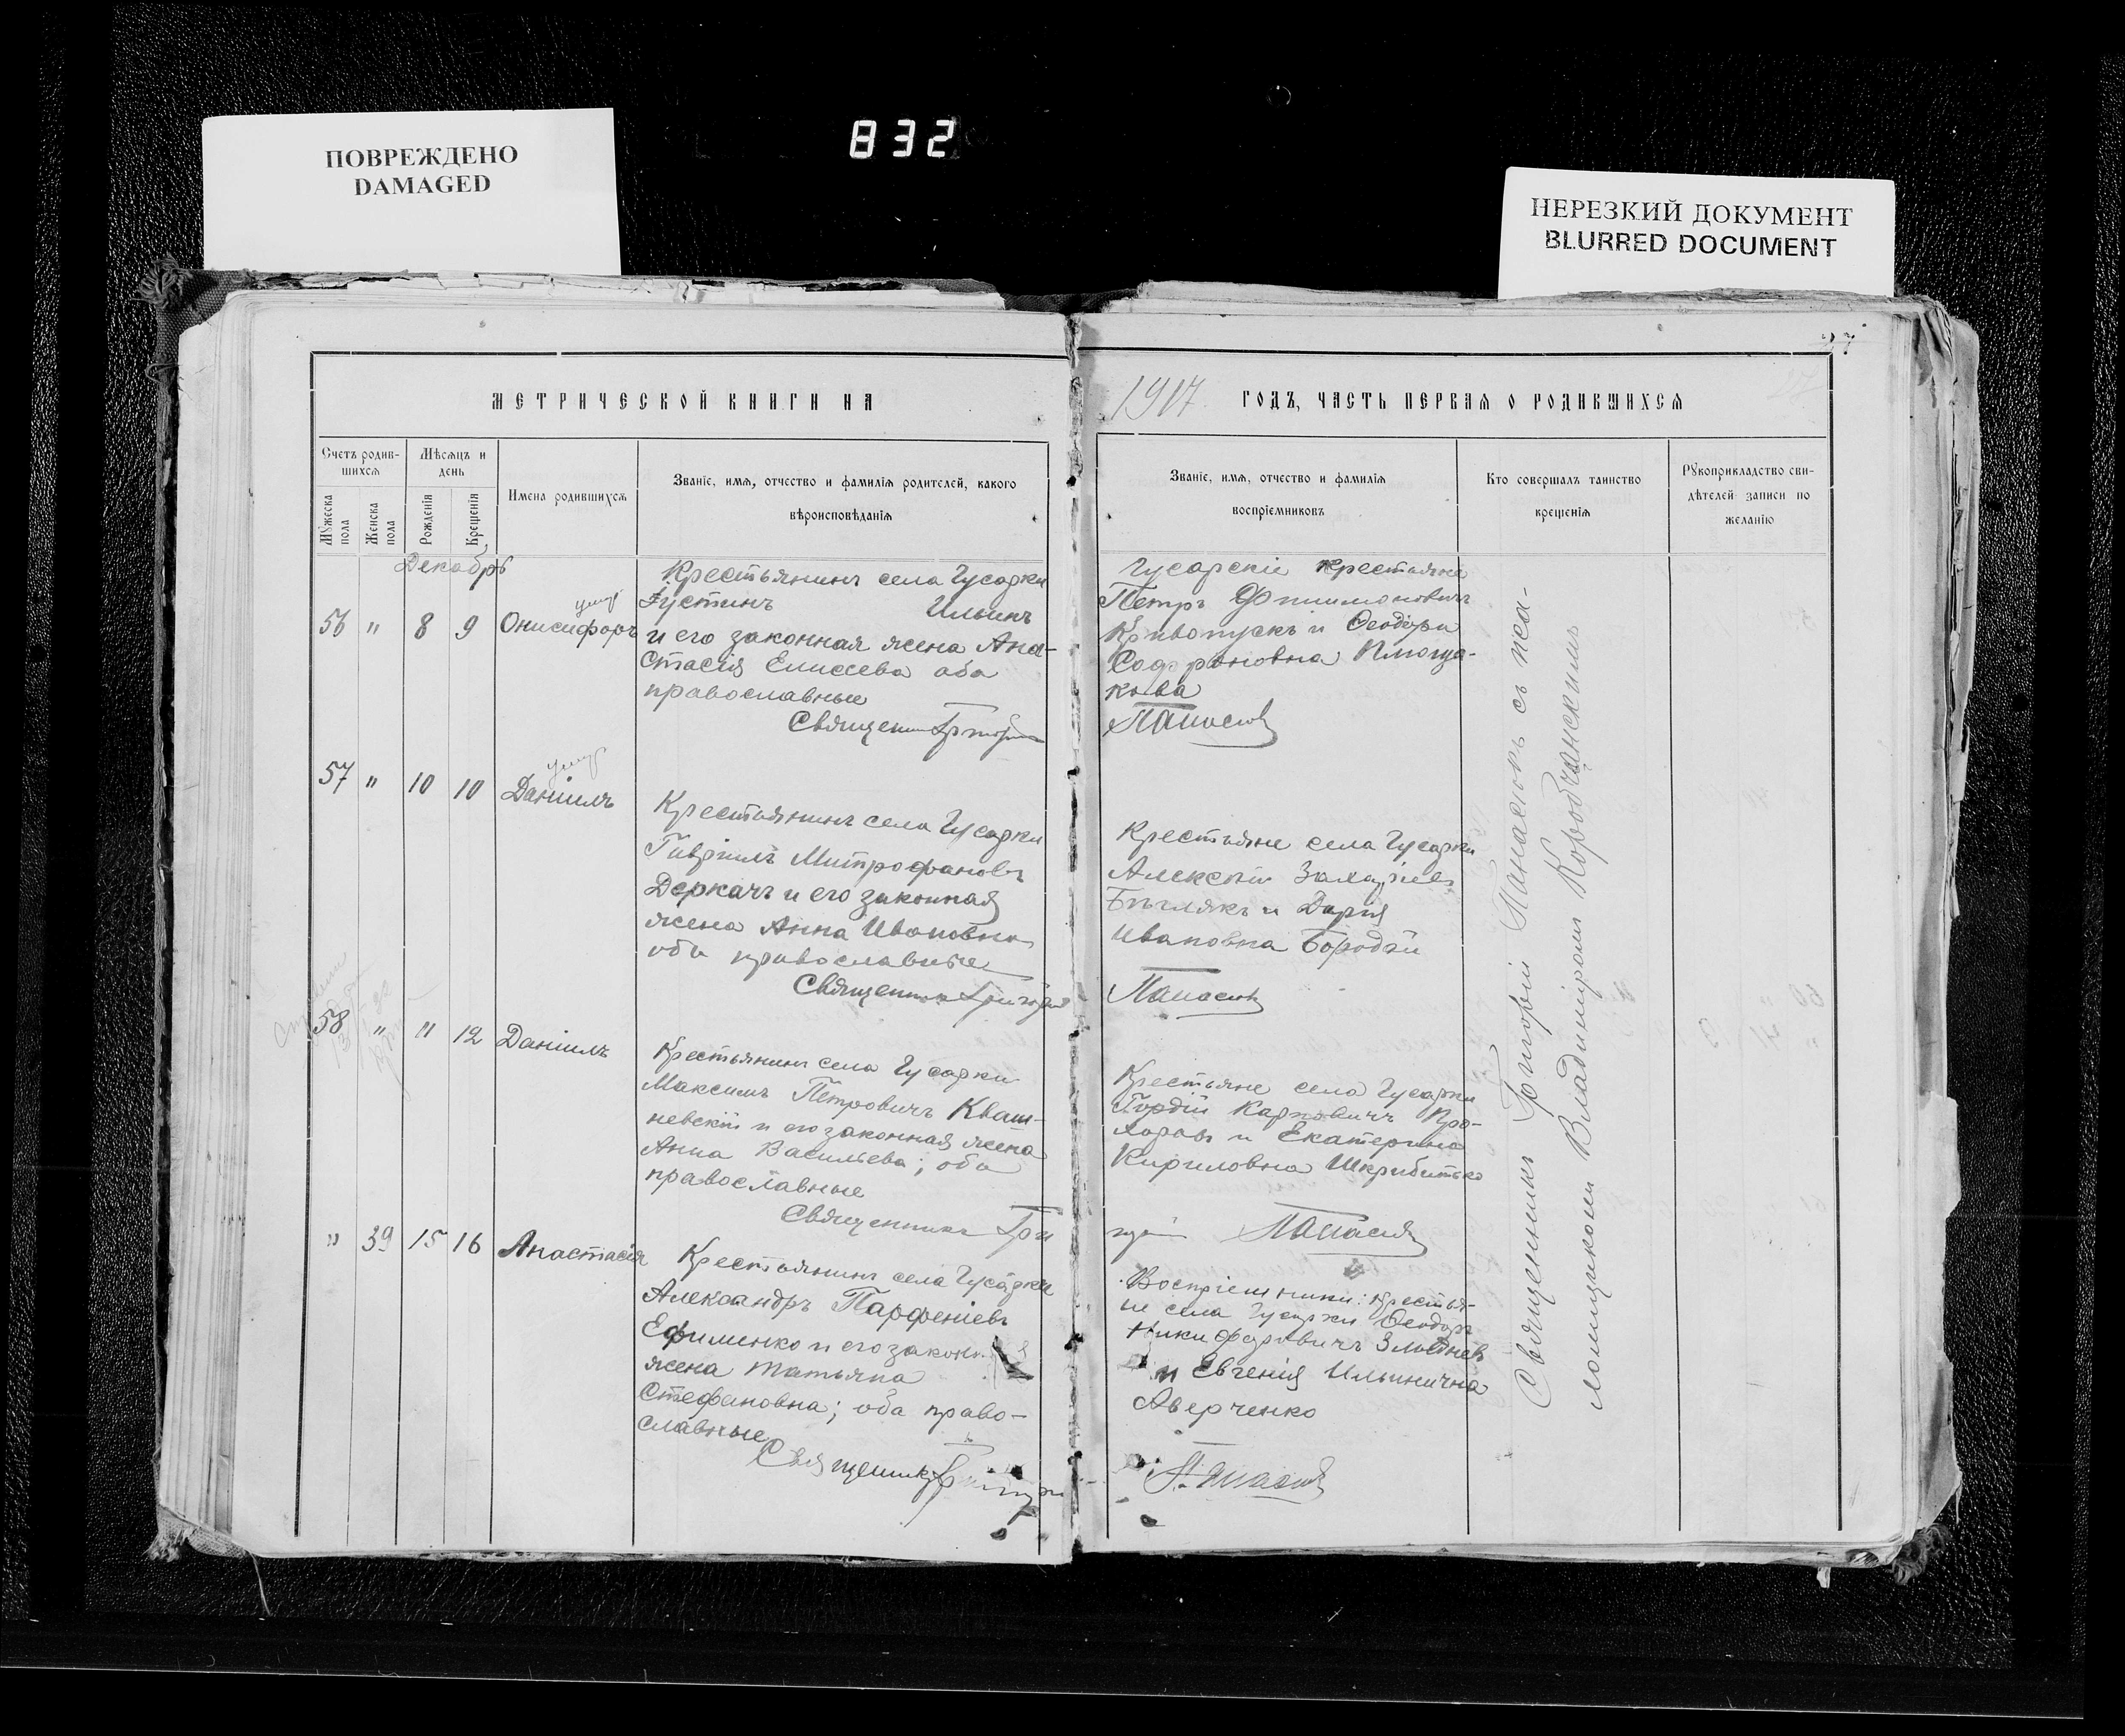 832
ПОВРЕЖДЕНО
DAMAGED
НЕРЕЗКИЙ ДОКУМЕНТ
BLURRED DOCUMENT
27
МЕТРИЧЕСКОЙ КНИГИ НА
1917 ГОДЪ, ЧАСТЬ ПЕРВАЯ О РОДИВШИХСЯ
Счетъ родив-
шихся
Мѣсяцъ и
день
Мужеска
пола
Женска
пола
Рожденія
Крещенія
Имена родившихся
Званіе, имя, отчество и фамилія родителей, какого
вѣроисповѣданія
Званіе, имя, отчество и фамилія
воспріемниковъ
Кто совершалъ таинство
крещенія
Рукоприкладство сви-
дѣтелей записи по
желанію
Декабрь
56 " 8 9 Онисифоръ
умер
Крестьянинъ села Гусарки
Іустинъ Ильинъ
и его законная жена Ана-
стасія Елисеева оба
православные
Священникъ Григорій
Гусарскіе крестьяне
Петръ Филимоновичъ
Кривопускъ и Ѳеодора
Софроновна
кова
Панасюк
57 " 10 10 Даніилъ
умер
Крестьянинъ села Гусарки
Гавріилъ Митрофановъ
Деркачъ и его законная
жена Анна Ивановна
оба православные
Священникъ Григорій
Крестьяне села Гусарки
Алексѣй Захаріев
Бѣглякъ и Дарія
Ивановна Бородай
Панасюк
58 " " 12 Даніилъ
Крестьянинъ села Гусарки
Максимъ Петровичъ Кваш-
невскій и его законная жена
Анна Васильева; оба
православные
Священникъ Гри
Крестьяне села Гусарки
Гордій Карповичъ Про-
хоровъ и Екатерина
Кириловна Шкрибитько
горій Панасюк
" 39 15 16 Анастасія
Крестьянинъ села Гусарки
Александръ Парфеніевъ
Ефименко и его законн.
жена Татьяна
Стефановна; оба право-
славные
Священникъ Григорій
Воспріемники: крестья-
не села Гусарки Ѳеодоръ
Никифоровичъ Злыднев
и Евгенія Ильинична
Аверченко
Панасюк
Священникъ Григорій Панасюкъ съ пса-
ломщикомъ Владиміромъ Коробчанскимъ